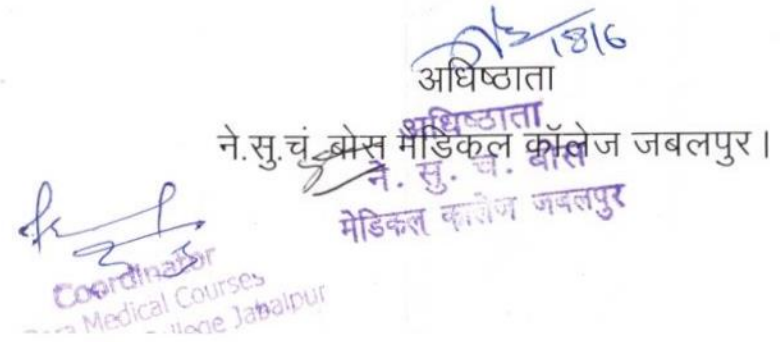 18/6
अधिष्ठाता
अधिष्ठाता
ने.सु.चं. बोस मेडिकल कॉलेज जबलपुर।
ने. सु. चं. बोस
मेडिकल कालेज जबलपुर
Coordinator
Medical Courses
College Jabalpur